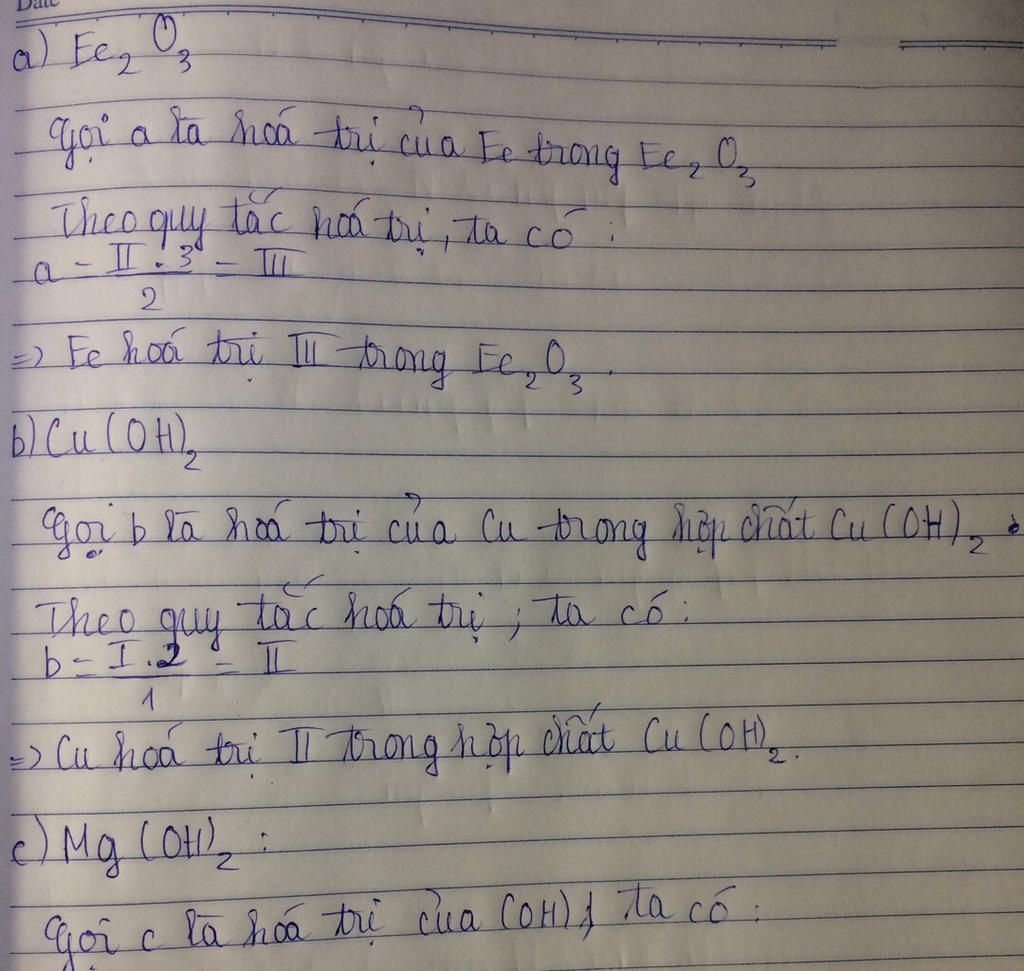 Date
a) Fe₂O₃
Gọi a là hoá trị của Fe trong Fe₂O₃
Theo quy tắc hoá trị, ta có :
a = II . 3 / 2 = III
=> Fe hoá trị III trong Fe₂O₃.
b) Cu(OH)₂
Gọi b là hoá trị của Cu trong hợp chất Cu(OH)₂.
Theo quy tắc hoá trị, ta có :
b = I . 2 / 1 = II
=> Cu hoá trị II trong hợp chất Cu(OH)₂.
c) Mg(OH)₂ :
Gọi c là hoá trị của (OH), ta có :